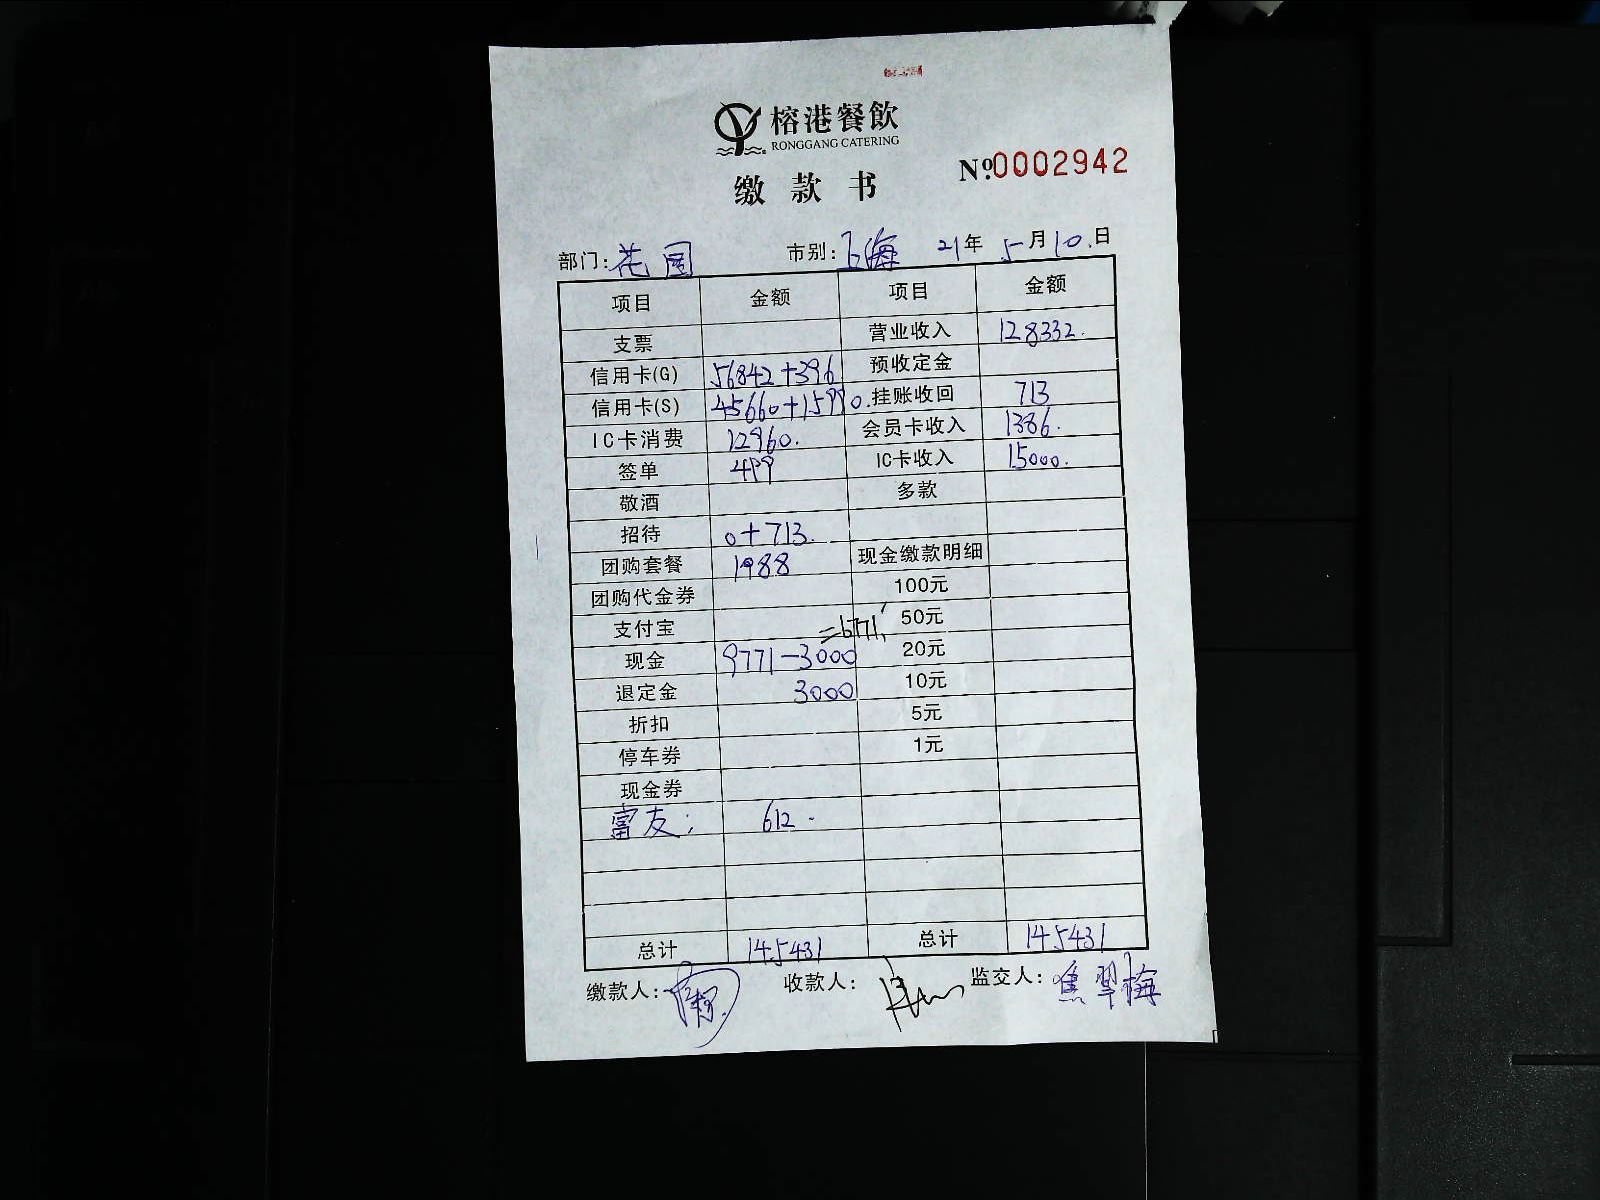 榕港餐飲
RONGGANG CATERING
缴款书
№.0002942
部门:花园 市别:上海 21年5月10.日
项目 金额 项目 金额
支票 营业收入 128332.
信用卡(G) 56842+396 预收定金
信用卡(S) 45660+15990. 挂账收回 713
IC卡消费 12960. 会员卡收入 1386.
签单 499 IC卡收入 15000.
敬酒 多款
招待 0+713.
团购套餐 1988 现金缴款明细
团购代金券 100元
支付宝 =6771 50元
现金 9771-3000 20元
退定金 3000 10元
折扣 5元
停车券 1元
现金券
富友: 612.
总计 145431 总计 145431
缴款人: 收款人: 监交人:焦翠梅